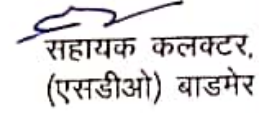 सहायक कलक्टर,
(एसडीओ) बाडमेर